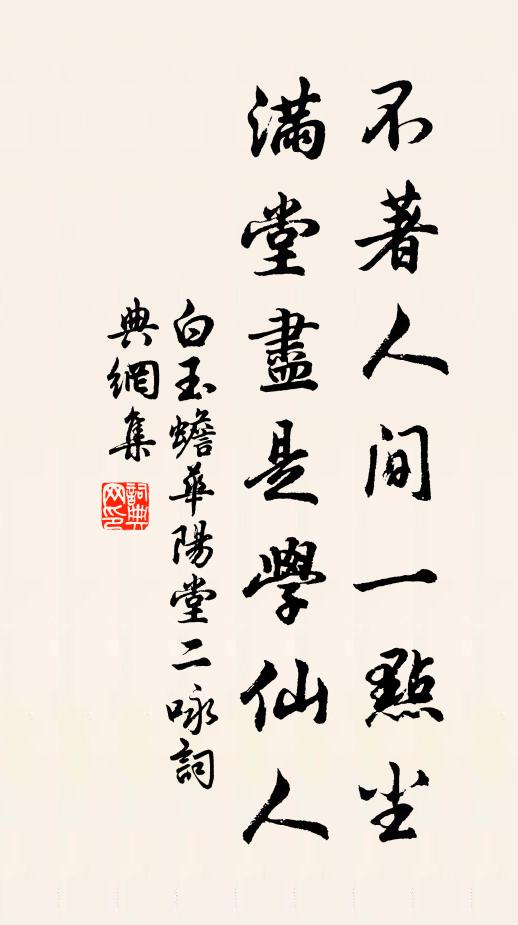 不著人间一點尘
滿堂盡是學仙人
白玉蟾華陽堂二咏詞
典網集
詞典网印